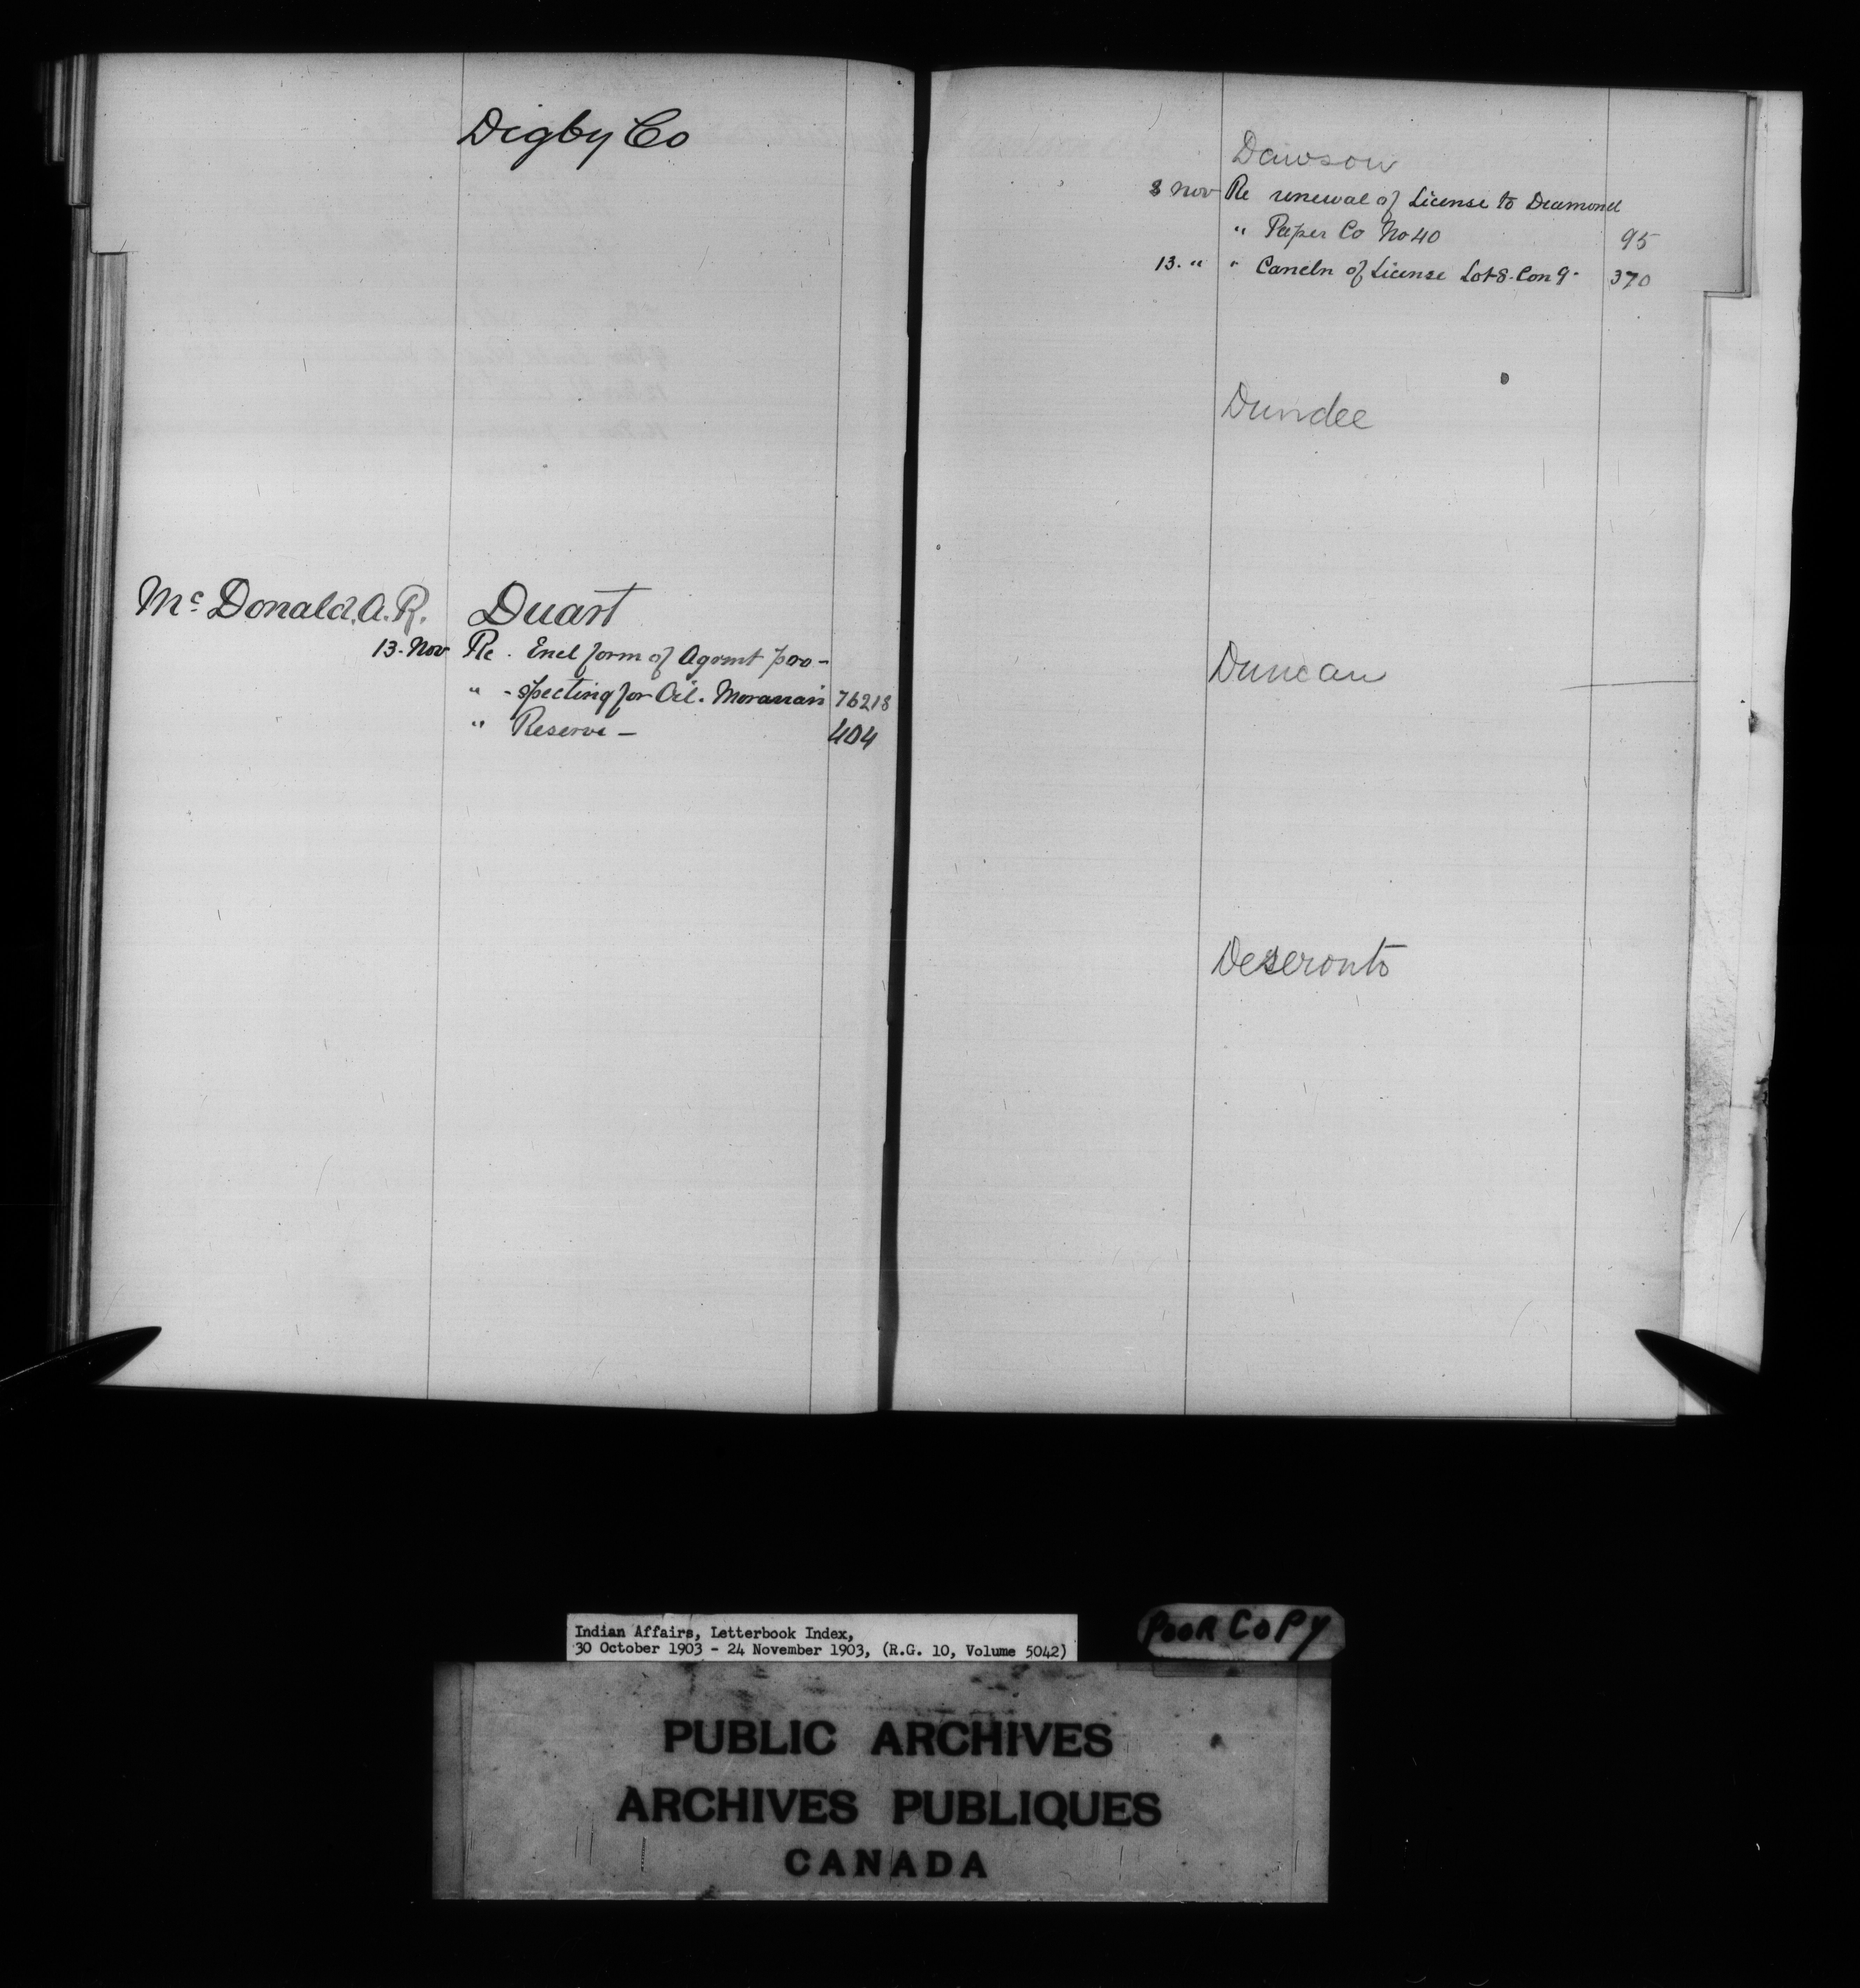 Digby Co
Mc Donald. A. R. Duart
13. Nov Re. Encl form of Agrmt pro-
" - specting for Oil. Moravian 76218
" Reserve - 404
Dawson
8 Nov Re renewal of License to Diamond
" Paper Co No 40 95
13. " " Caneln of License Lot 8. Con 9. 370
Dundee
Duncan
Deseronto
Indian Affairs, Letterbook Index,
30 October 1903 - 24 November 1903, (R.G. 10, Volume 5042)
POOR COPY
PUBLIC ARCHIVES
ARCHIVES PUBLIQUES
CANADA